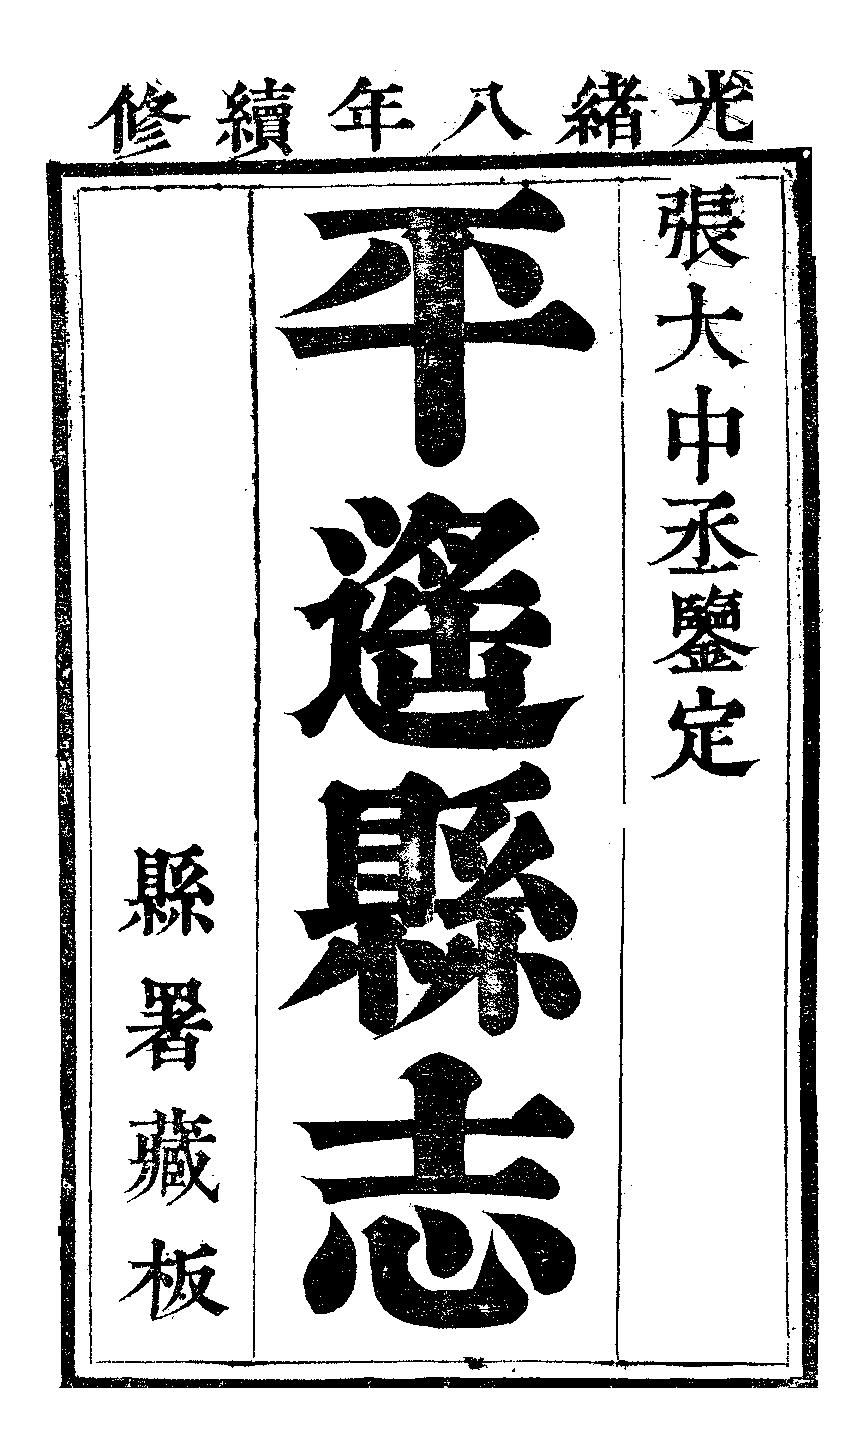 光緒八年續修
張大中丞鑒定
平遙縣志
縣署藏板